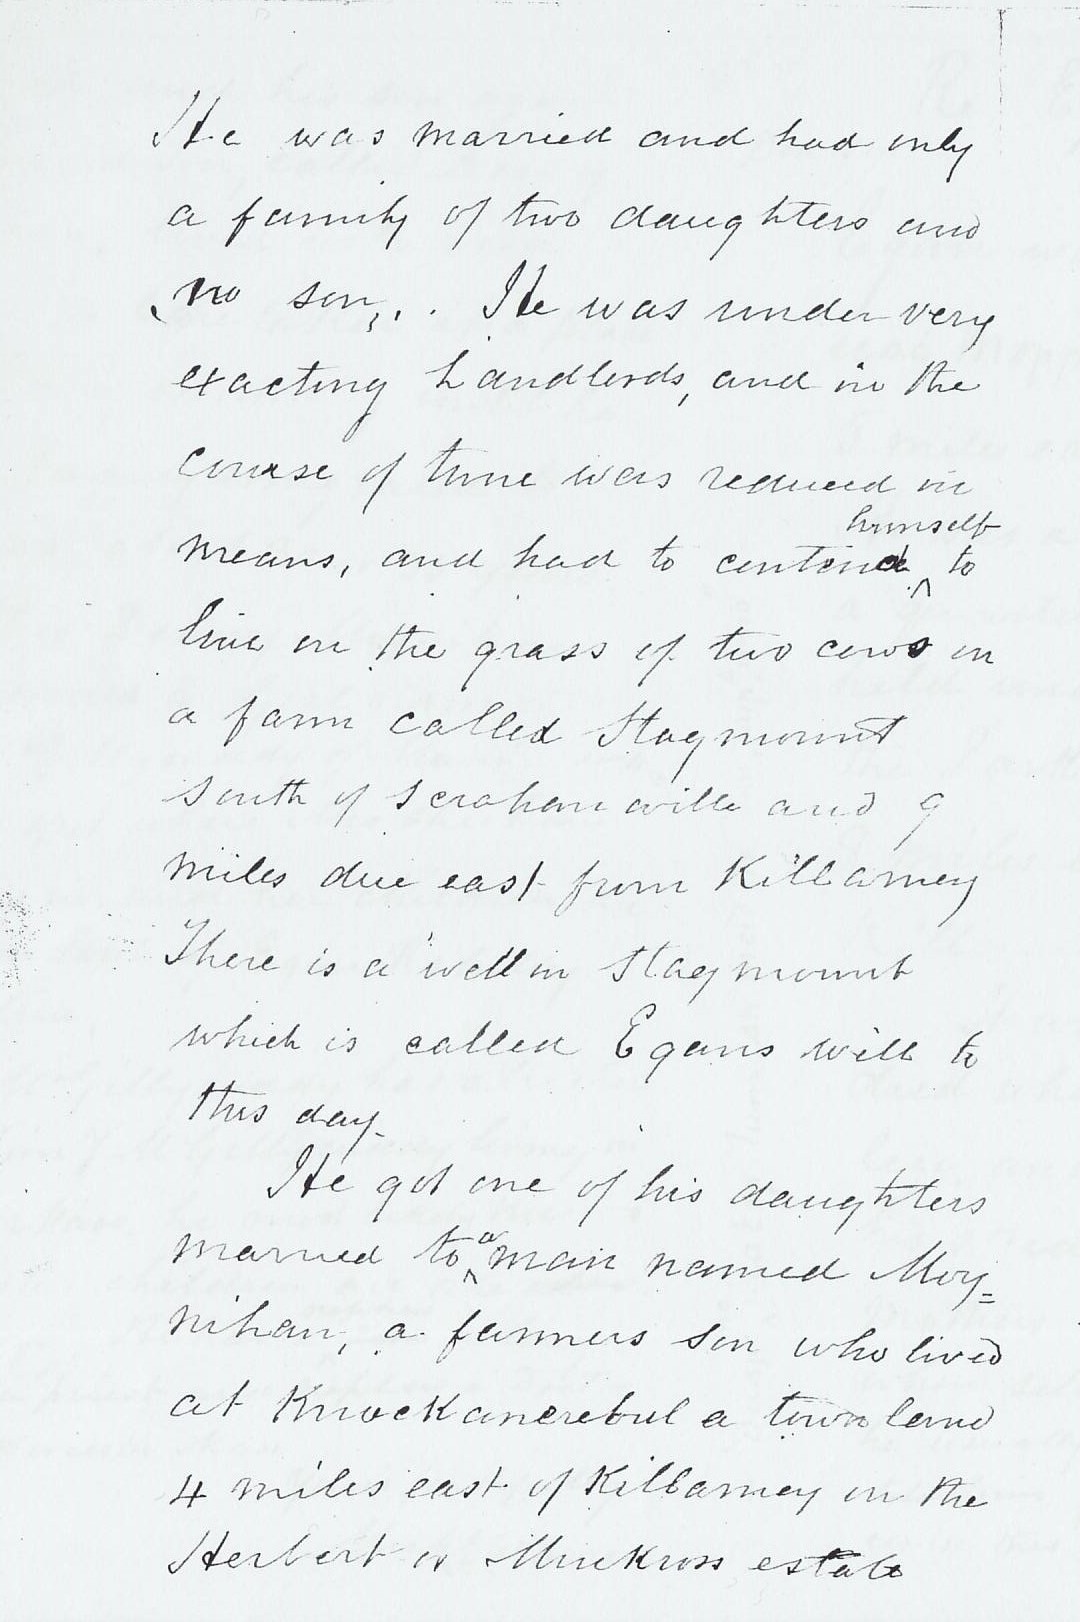 He was married and had only
a family of two daughters and
no son, . He was under very
exacting Landlords, and in the
course of time was reduced in
himself
means, and had to contend to
live on the grass of two cows on
a farm called Stagmount
South of Scrahanaville and 9
miles due east from Killarney
There is a well in Stagmount
which is called Egans well to
this day.
He got one of his daughters
married to a man named Moy=
nihan, a farmers son who lived
at Knockancrebul a town land
4 miles east of Killarney on the
Herbert or Muckross estate